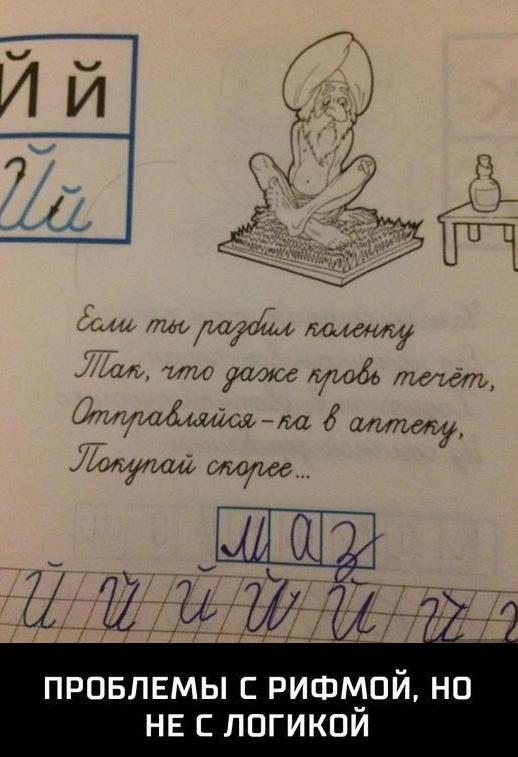 Й й
Й й
Если ты разбил коленку
Так, что даже кровь течёт,
Отправляйся-ка в аптеку,
Покупай скорее...
маз
й й й й й й
ПРОБЛЕМЫ С РИФМОЙ, НО
НЕ С ЛОГИКОЙ